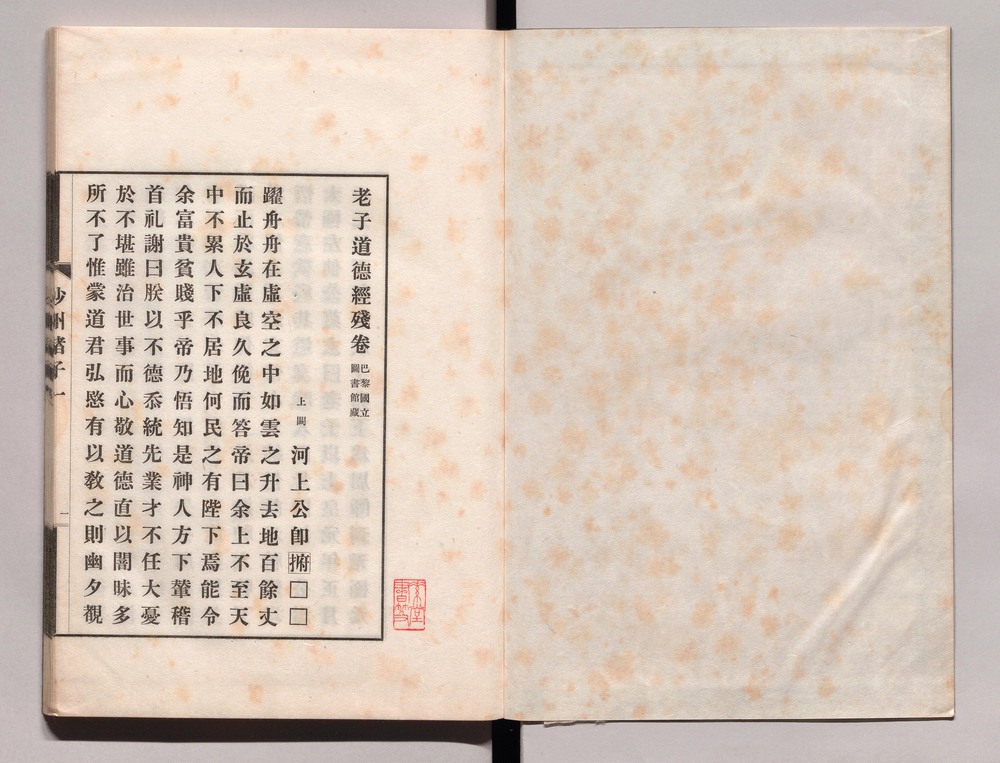 老子道德經殘卷 巴黎國立圖書館藏
上闕 河上公卽㨂□□
躍冉冉在虛空之中如雲之升去地百餘丈
而止於玄虛良久俛而答帝曰余上不至天
中不累人下不居地何民之有陛下焉能令
余富貴貧賤乎帝乃悟知是神人方下輦稽
首礼謝曰朕以不德忝統先業才不任大憂
於不堪雖治世事而心敬道德直以闇昧多
所不了惟蒙道君弘愍有以敎之則幽夕覩
沙州諸子一
一